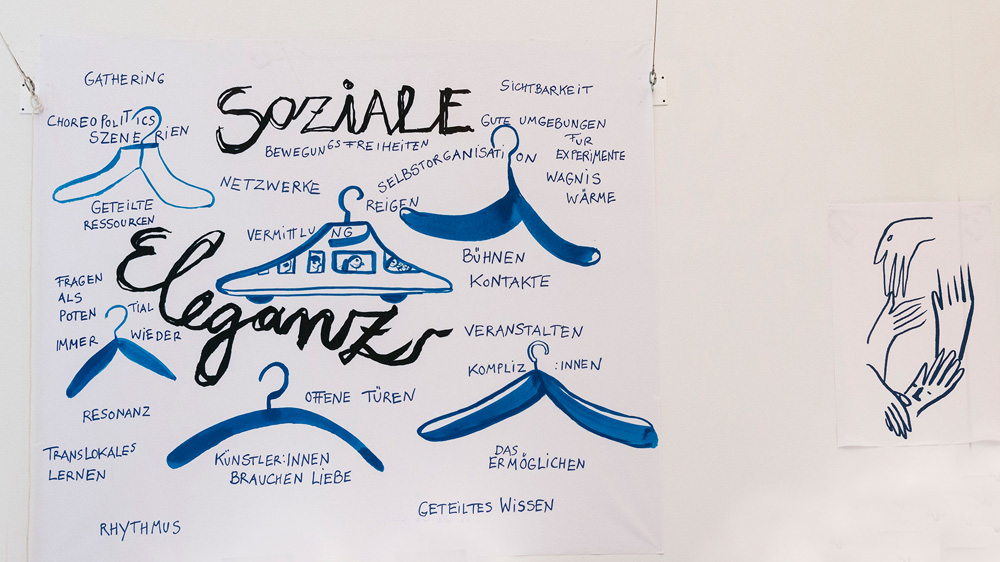 GATHERING
SOZIALE
SICHTBARKEIT
CHOREOPOLITICS
SZENERIEN
BEWEGUNGSFREIHEITEN
GUTE UMGEBUNGEN
FÜR
EXPERIMENTE
SELBSTORGANISATION
WAGNIS
WÄRME
NETZWERKE
REIGEN
GETEILTE
RESSOURCEN
VERMITTLUNG
Eleganz
BÜHNEN
KONTAKTE
FRAGEN
ALS
POTENTIAL
IMMER WIEDER
VERANSTALTEN
KOMPLIZ:INNEN
RESONANZ
OFFENE TÜREN
TRANSLOKALES
LERNEN
KÜNSTLER:INNEN
BRAUCHEN LIEBE
DAS
ERMÖGLICHEN
GETEILTES WISSEN
RHYTHMUS